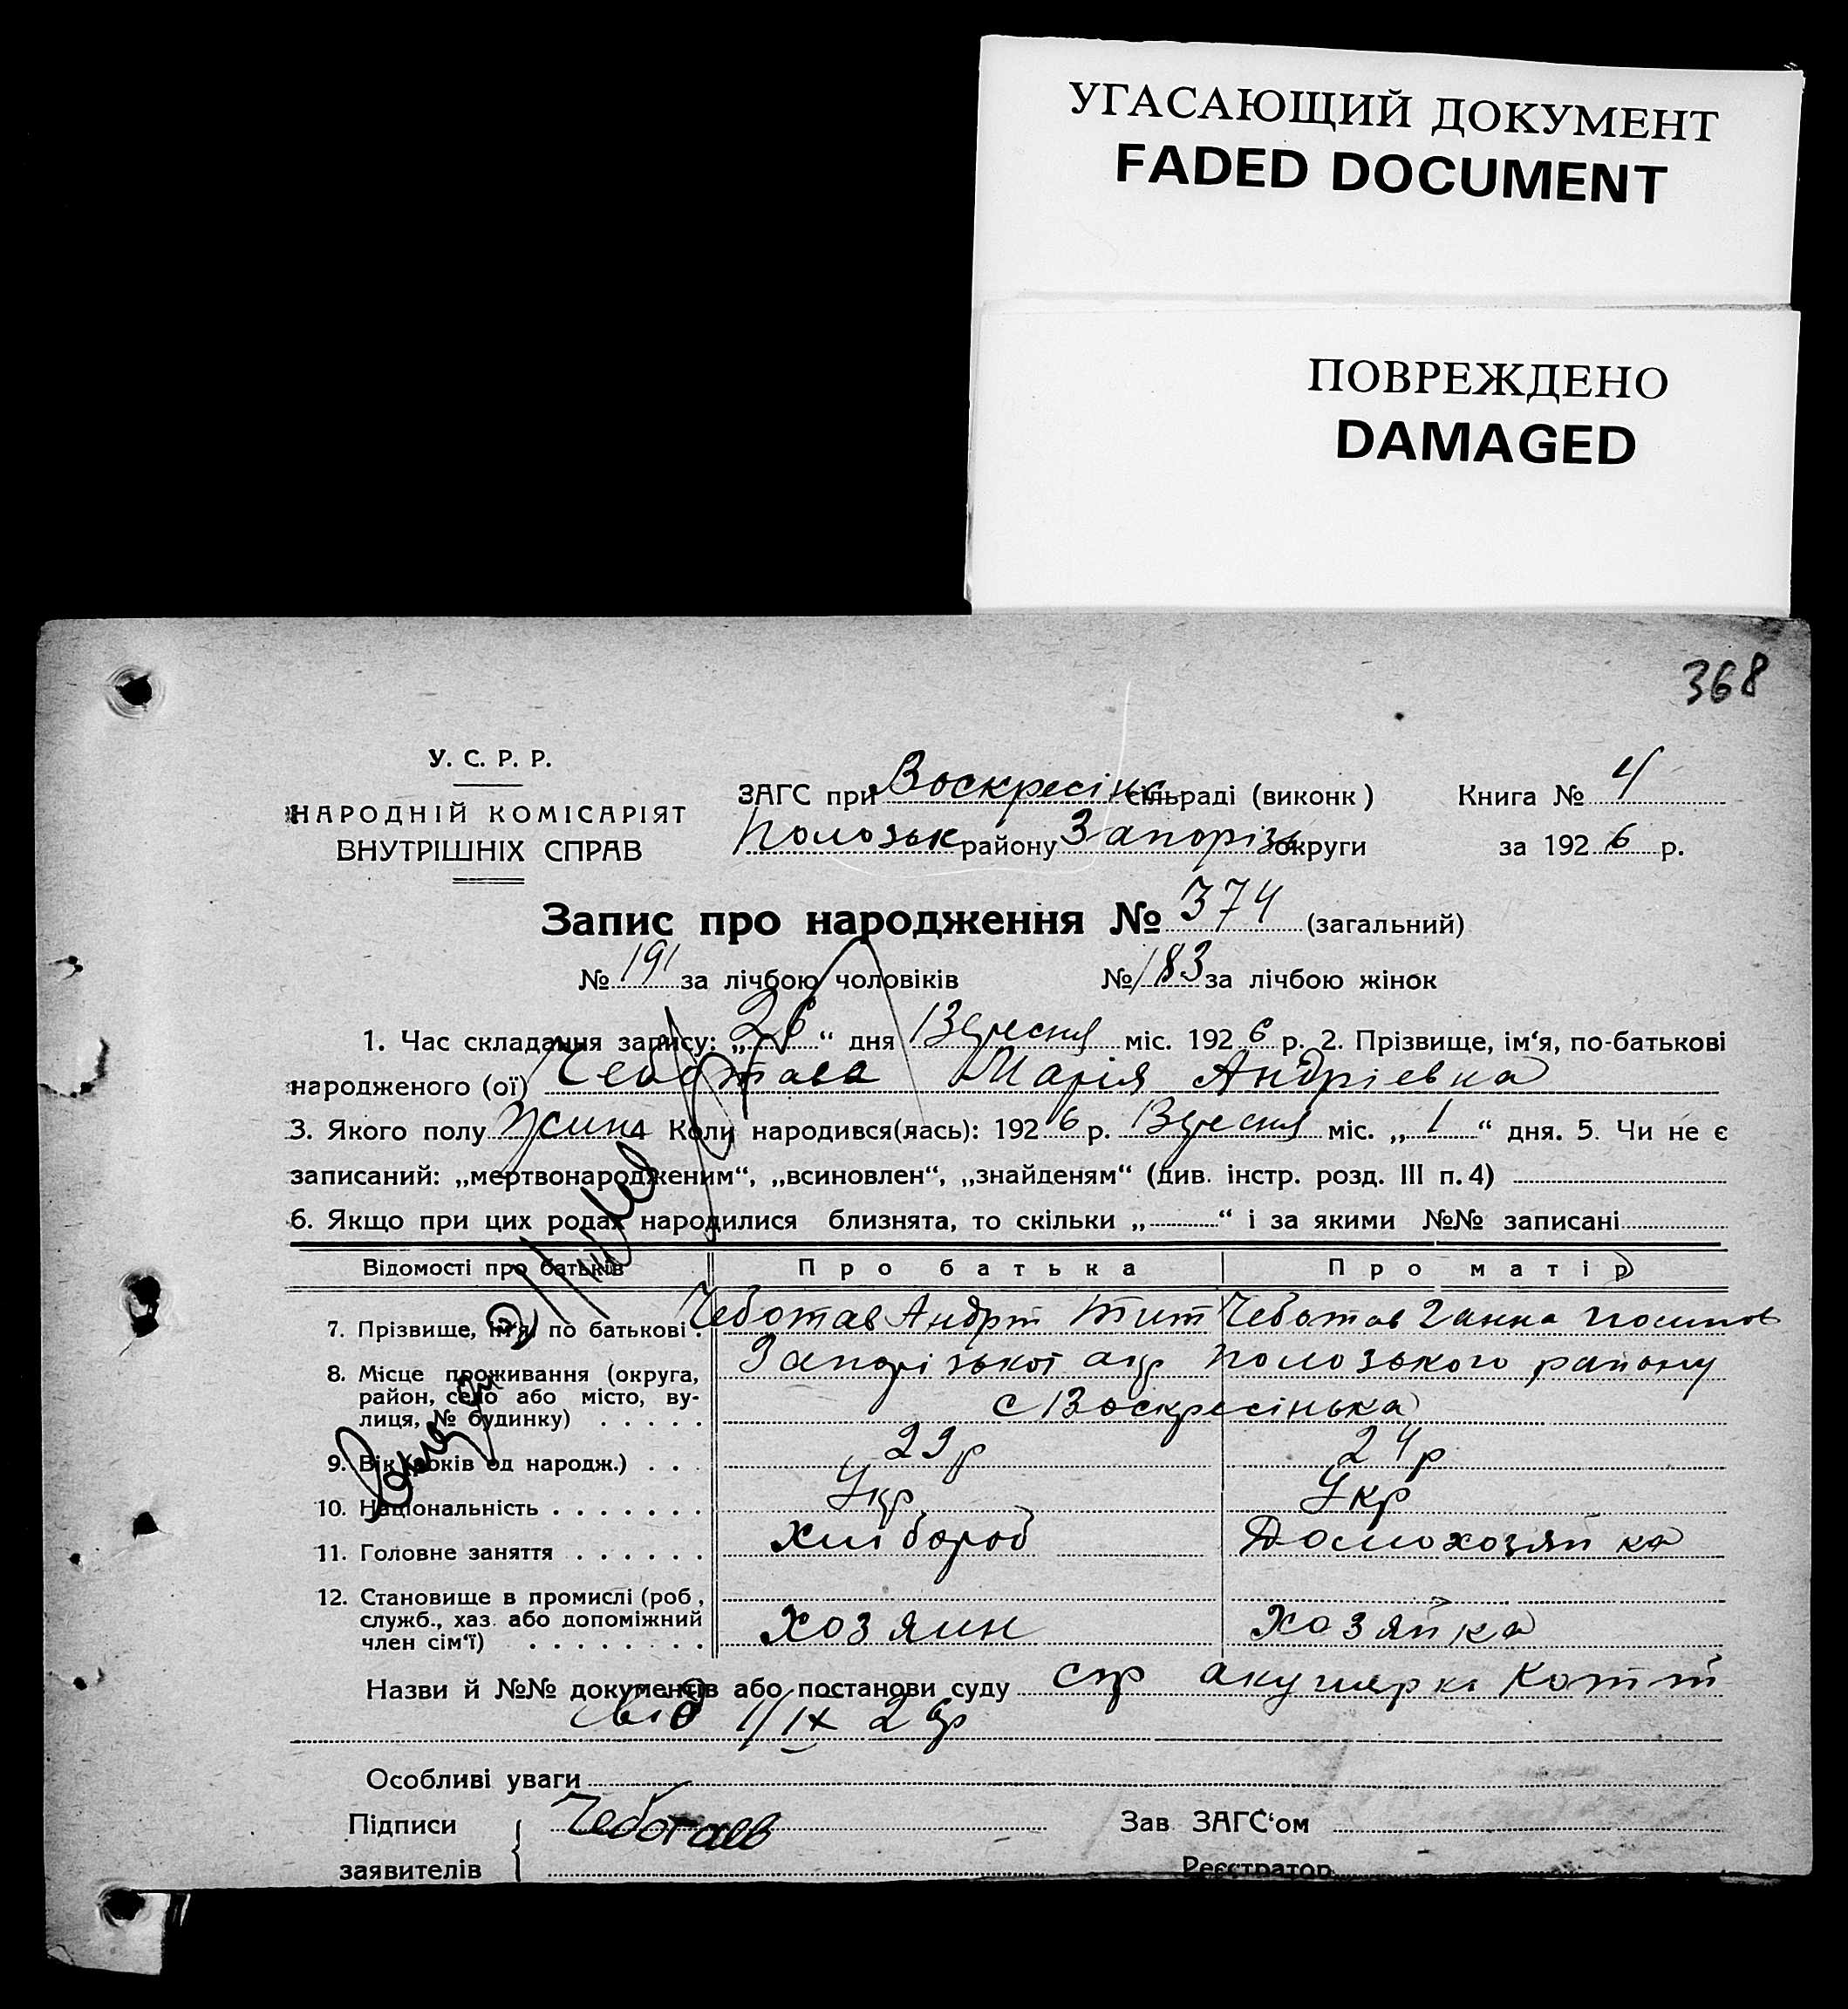 УГАСАЮЩИЙ ДОКУМЕНТ
FADED DOCUMENT
ПОВРЕЖДЕНО
DAMAGED
368
У. С. Р. Р.
НАРОДНІЙ КОМІСАРІЯТ
ВНУТРІШНІХ СПРАВ
ЗАГС при Воскресінс сільраді (виконк) Книга № 4
Полозьк району Запорізь округи за 1926 р.
Запис про народження № 374 (загальний)
№ 191 за лічбою чоловіків № 183 за лічбою жінок
1. Час складання запису: „26“ дня Вересня міс. 1926 р. 2. Прізвище, ім‘я, по-батькові
народженого (ої) Чеботаев Марія Андріевна
3. Якого полу жин 4 Коли народився(лась): 1926 р. Вересня міс. „1“ дня. 5. Чи не є
записаний: „мертвонародженим“, „всиновлен“, „знайденям“ (див. інстр. розд. III п. 4)
6. Якщо при цих родах народилися близнята, то скільки „ “ і за якими №№ записані
Відомості про батьків Про батька Про матір
7. Прізвище, ім‘я, по батькові. Чеботаев Андрій Тит Чеботав Ганна Йосипов
8. Місце проживання (округа, Запорізької окр Полозького району
район, село або місто, ву-
лиця, № будинку) . . . . . с Воскресінька
9. Вік (років од народж.) . . . 29р 24р
10. Національність . . . . . . . Укр Укр
11. Головне заняття . . . . . . Хлібороб Домохозяйка
12. Становище в промислі (роб.,
служб., хаз. або допоміжний Хозяин Хозяйка
член сім‘ї) . . . . . . . .
Назви й №№ документів або постанови суду спр акушерки
від 1/IX 26р
Особливі уваги
Підписи Чеботаев Зав ЗАГС‘ом
заявителів Реєстратор